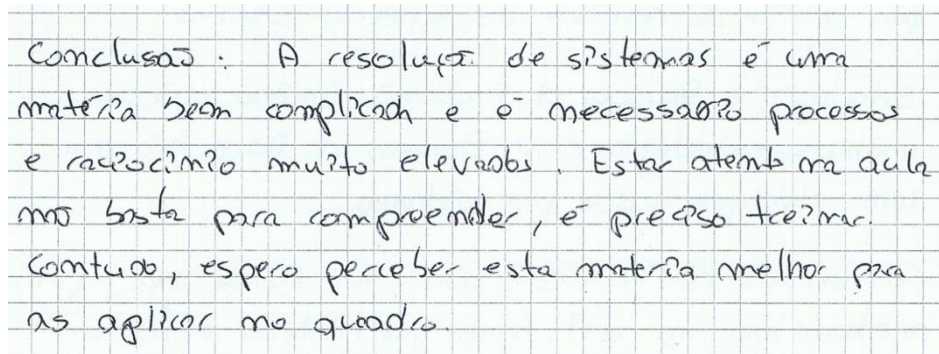 Conclusão: A resolução de sistemas é uma
matéria bem complicada e é necessário processos
e raciocínio muito elevados. Estar atento na aula
não basta para compreender, é preciso treinar.
Contudo, espero perceber esta materia melhor para
as aplicar no quadro.